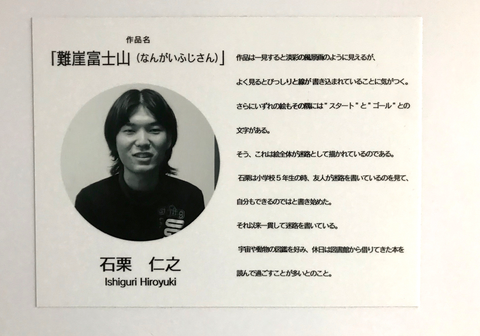 作品名
「難崖富士山（なんがいふじさん）」
石栗　仁之
Ishiguri Hiroyuki
作品は一見すると淡彩の風景画のように見えるが、
よく見るとびっしりと線が書き込まれていることに気がつく。
さらにいずれの絵もその隅には"スタート"と"ゴール"との
文字がある。
そう、これは絵全体が迷路として描かれているのである。
石栗は小学校5年生の時、友人が迷路を書いているのを見て、
自分もできるのではと書き始めた。
それ以来一貫して迷路を書いている。
宇宙や動物の図鑑を好み、休日は図書館から借りてきた本を
読んで過ごすことが多いとのこと。